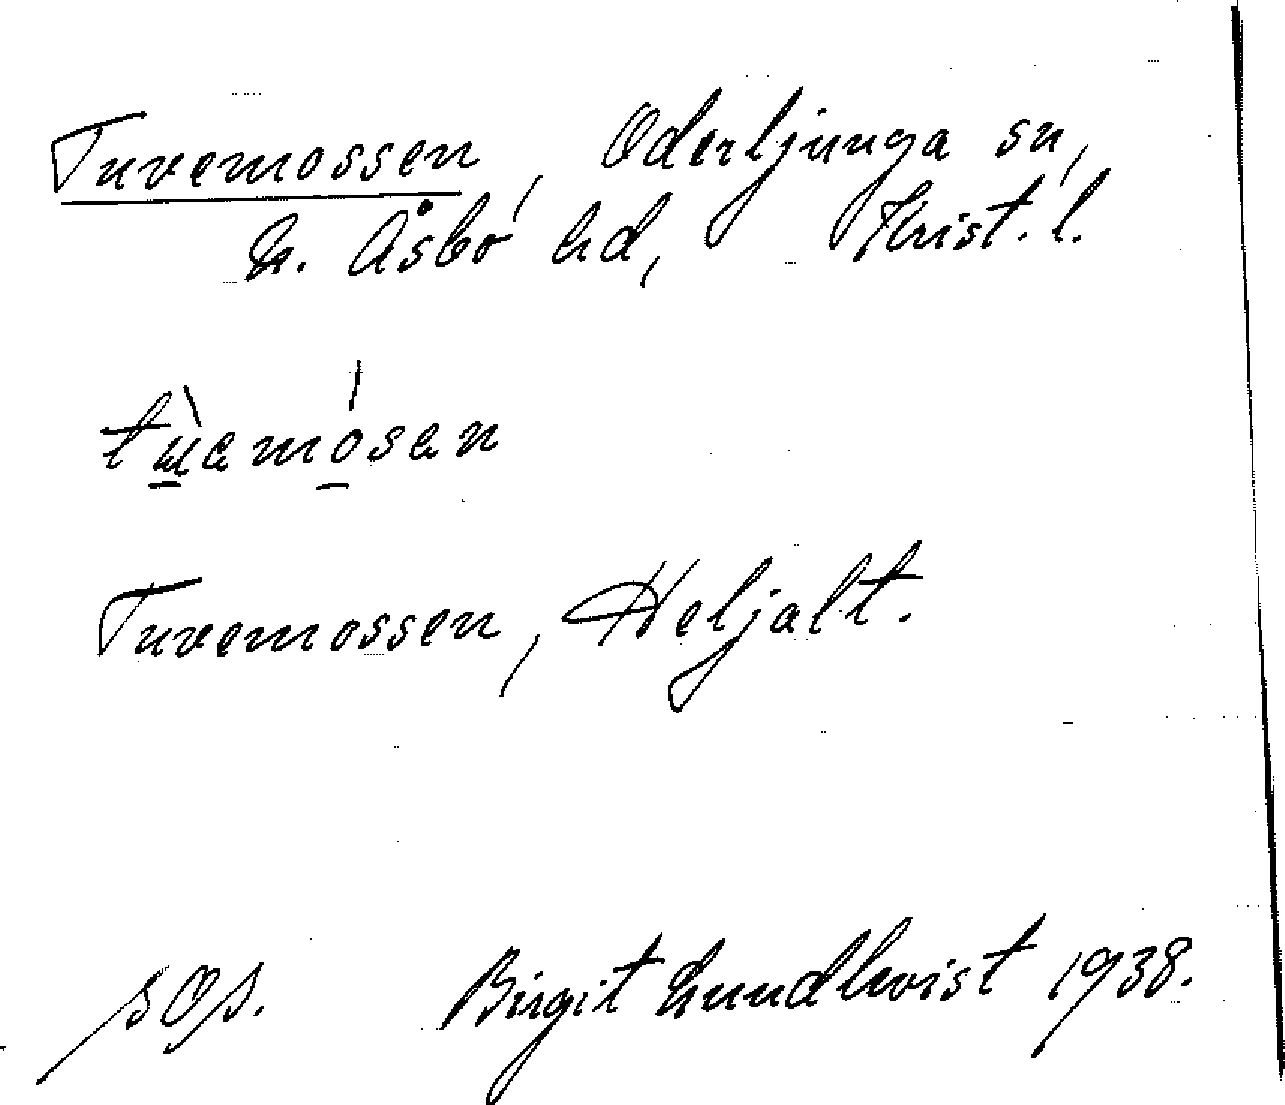 Tuvemossen, Oderljunga sn,
N. Åsbo hd, Krist. l.
tùemósen
Tuvemossen, Heljalt.
sOs. Birgit Lundkvist 1938.